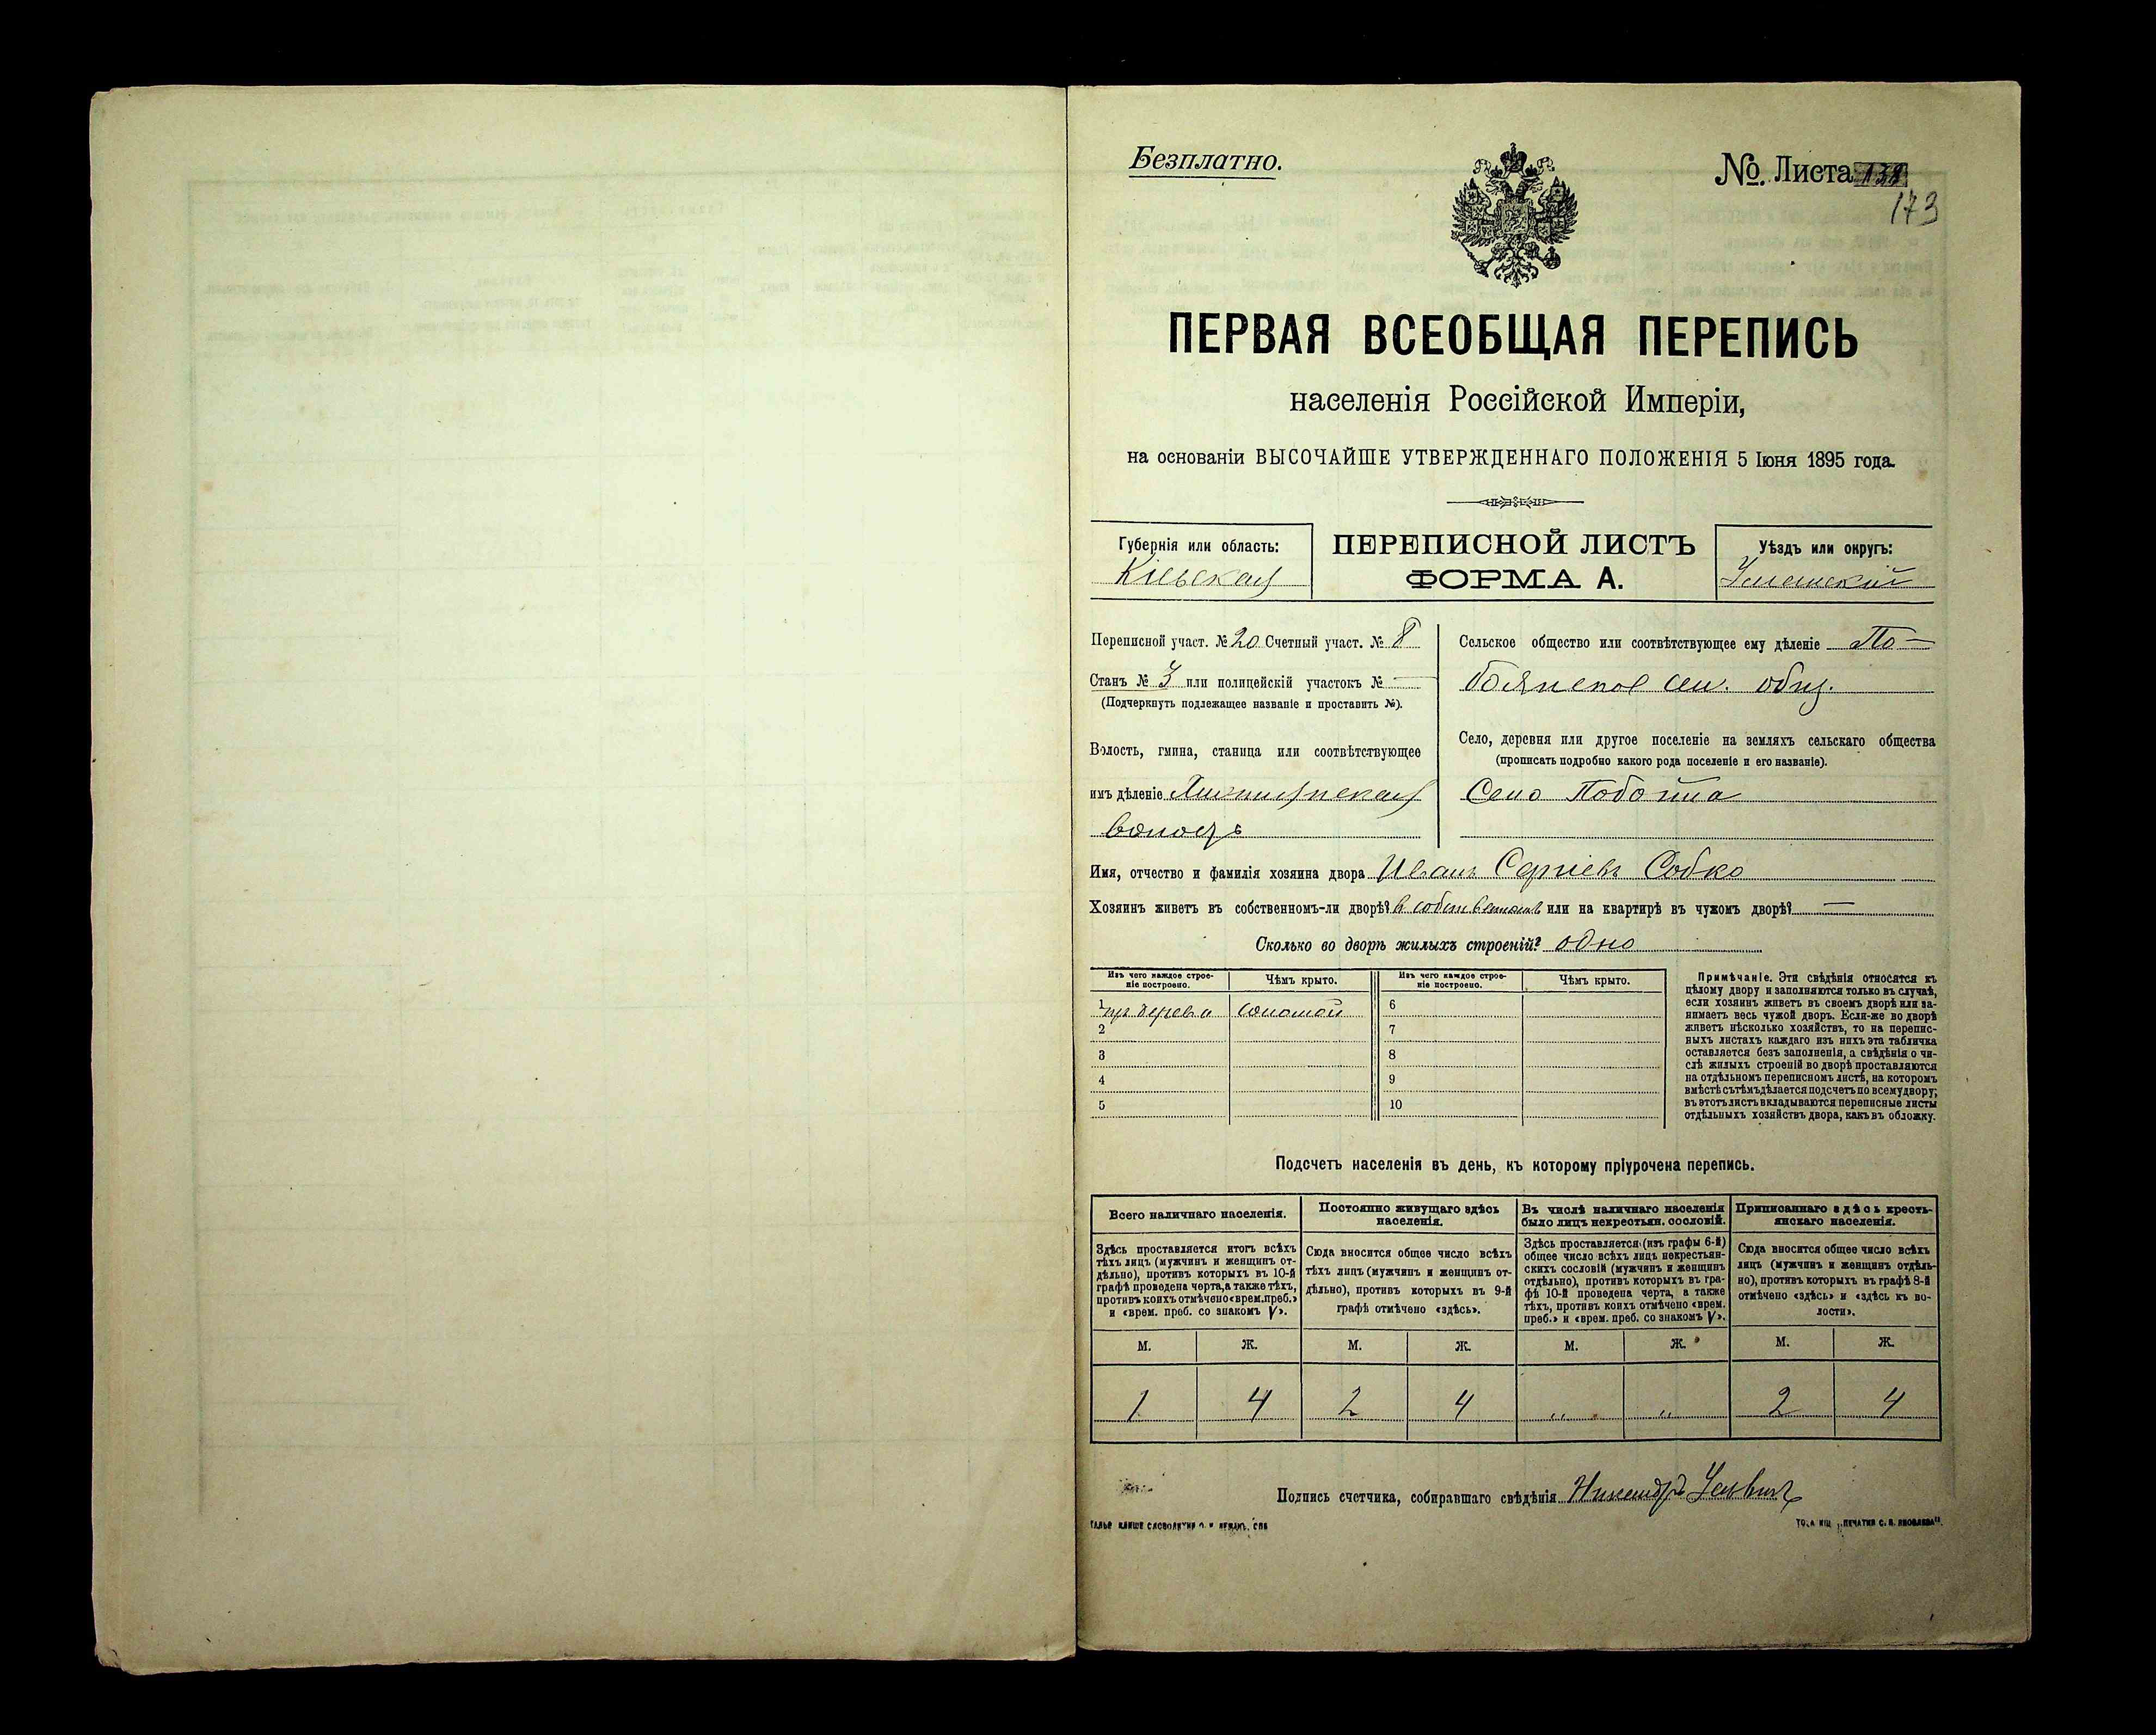 Безплатно.
№ Листа 138
173
ПЕРВАЯ ВСЕОБЩАЯ ПЕРЕПИСЬ
населенія Россійской Имперіи,
на основаніи ВЫСОЧАЙШЕ УТВЕРЖДЕННАГО ПОЛОЖЕНІЯ 5 Іюня 1895 года.
Губернія или область:
Кіевская
ПЕРЕПИСНОЙ ЛИСТЪ
ФОРМА А.
Уѣздъ или округъ:
Уманскій
Переписной участ. № 20 Счетный участ. № 8
Станъ № 3 или полицейскій участокъ № —
(Подчеркнуть подлежащее названіе и проставить №).
Волость, гмина, станица или соотвѣтствующее
имъ дѣленіе
волость
Сельское общество или соотвѣтствующее ему дѣленіе По-
боянское сел. общ.
Село, деревня или другое поселеніе на земляхъ сельскаго общества
(прописать подробно какого рода поселеніе и его названіе).
Село Побойна
Имя, отчество и фамилія хозяина двора Иванъ Сергіевъ Собко
Хозяинъ живетъ въ собственномъ-ли дворѣ? в собственном или на квартирѣ въ чужомъ дворѣ? —
Сколько во дворѣ жилыхъ строеній? одно
Изъ чего каждое строе-
ніе построено.
Чѣмъ крыто.
Изъ чего каждое строе-
ніе построено.
Чѣмъ крыто.
1 из дерева соломой 6
2 7
3 8
4 9
5 10
Примѣчаніе. Эти свѣдѣнія относятся къ
цѣлому двору и заполняются только въ случаѣ,
если хозяинъ живетъ въ своемъ дворѣ или за-
нимаетъ весь чужой дворъ. Если-же во дворѣ
живетъ нѣсколько хозяйствъ, то на перепис-
ныхъ листахъ каждаго изъ нихъ эта табличка
оставляется безъ заполненія, а свѣдѣнія о чи-
слѣ жилыхъ строеній во дворѣ проставляются
на отдѣльномъ переписномъ листѣ, на которомъ
вмѣстѣ съ тѣмъ дѣлается подсчетъ по всему двору;
въ этотъ листъ вкладываются переписные листы
отдѣльныхъ хозяйствъ двора, какъ въ обложку.
Подсчетъ населенія въ день, къ которому пріурочена перепись.
Всего наличнаго населенія.
Постоянно живущаго здѣсь
населенія.
Въ числѣ наличнаго населенія
было лицъ некрестьян. сословій.
Приписаннаго здѣсь кресть-
янскаго населенія.
Здѣсь проставляется итогъ всѣхъ
тѣхъ лицъ (мужчинъ и женщинъ от-
дѣльно), противъ которыхъ въ 10-й
графѣ проведена черта, а также тѣхъ,
противъ коихъ отмѣчено «врем. преб.»
и «врем. преб. со знакомъ V».
Сюда вносится общее число всѣхъ
тѣхъ лицъ (мужчинъ и женщинъ от-
дѣльно), противъ которыхъ въ 9-й
графѣ отмѣчено «здѣсь».
Здѣсь проставляется (изъ графы 6-й)
общее число всѣхъ лицъ некрестьян-
скихъ сословій (мужчинъ и женщинъ
отдѣльно), противъ которыхъ въ гра-
фѣ 10-й проведена черта, а также
тѣхъ, противъ коихъ отмѣчено «врем.
преб.» и «врем. преб. со знакомъ V».
Сюда вносится общее число всѣхъ
лицъ (мужчинъ и женщинъ отдѣль-
но), противъ которыхъ въ графѣ 8-й
отмѣчено «здѣсь» и «здѣсь къ во-
лости».
М. Ж. М. Ж. М. Ж. М. Ж.
1 4 2 4 „ „ 2 4
Подпись счетчика, собиравшаго свѣдѣнія Никандръ